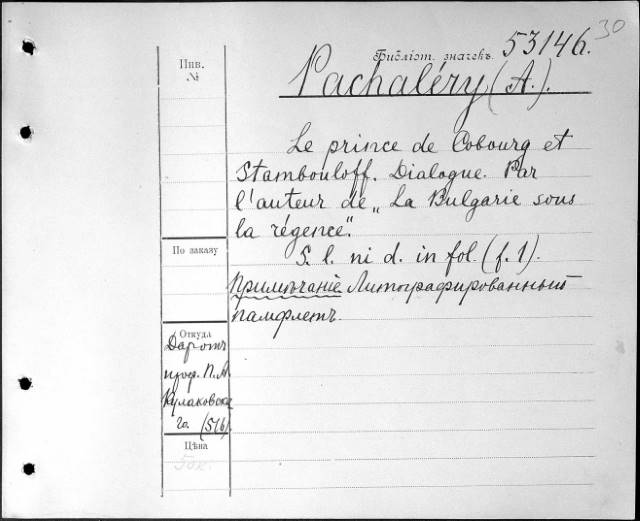 30
Библіот. значекъ. 53146.
Инв.
№
Pachaléry (A.).
Le prince de Cobourg et
Stambouloff. Dialogue. Par
l'auteur de „La Bulgarie sous
la régence".
S. l. ni d. in fol. (f. 1).
Примѣчаніе Литографированный
памфлетъ.
По заказу
Откуда
Даротъ
проф. П. А.
Кулаковска
го. (516).
Цѣна
50к.